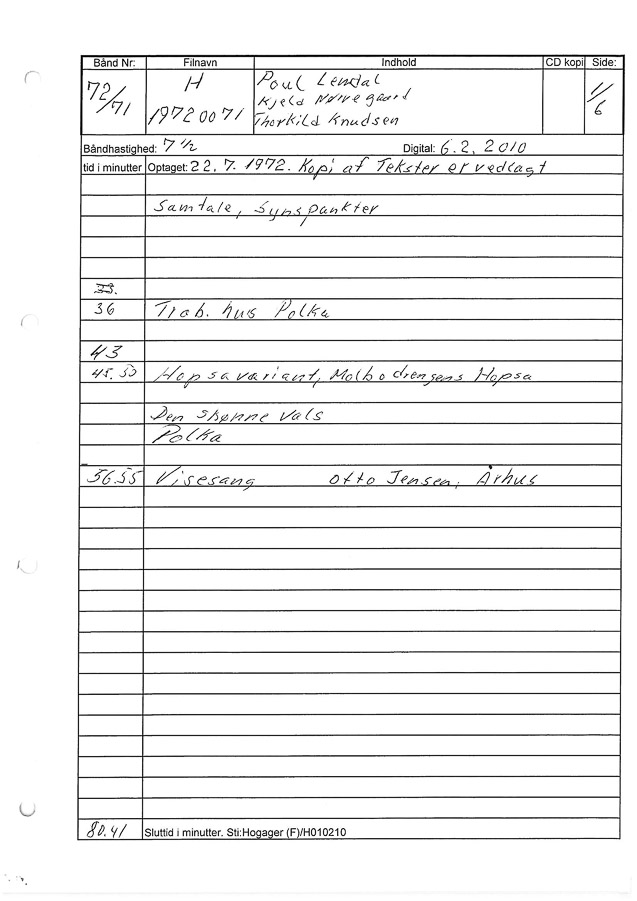 Bånd Nr: Filnavn Indhold CD kopi Side:
72/71 H 19720071 Poul Lendal 1/6
Kjeld Nørregaard
Thorkild Knudsen
Båndhastighed: 7 1/2 Digital: 6.2.2010
tid i minutter Optaget: 22.7.1972. Kopi af Tekster er vedlagt
Samtale, Synspunkter
36 Trab. hus Polka
43
45.50 Hopsavariant, Molbodrengens Hopsa
Den skønne Vals
Polka
56.55 Visesang Otto Jensen, Århus
80.41 Sluttid i minutter. Sti:Hogager (F)/H010210